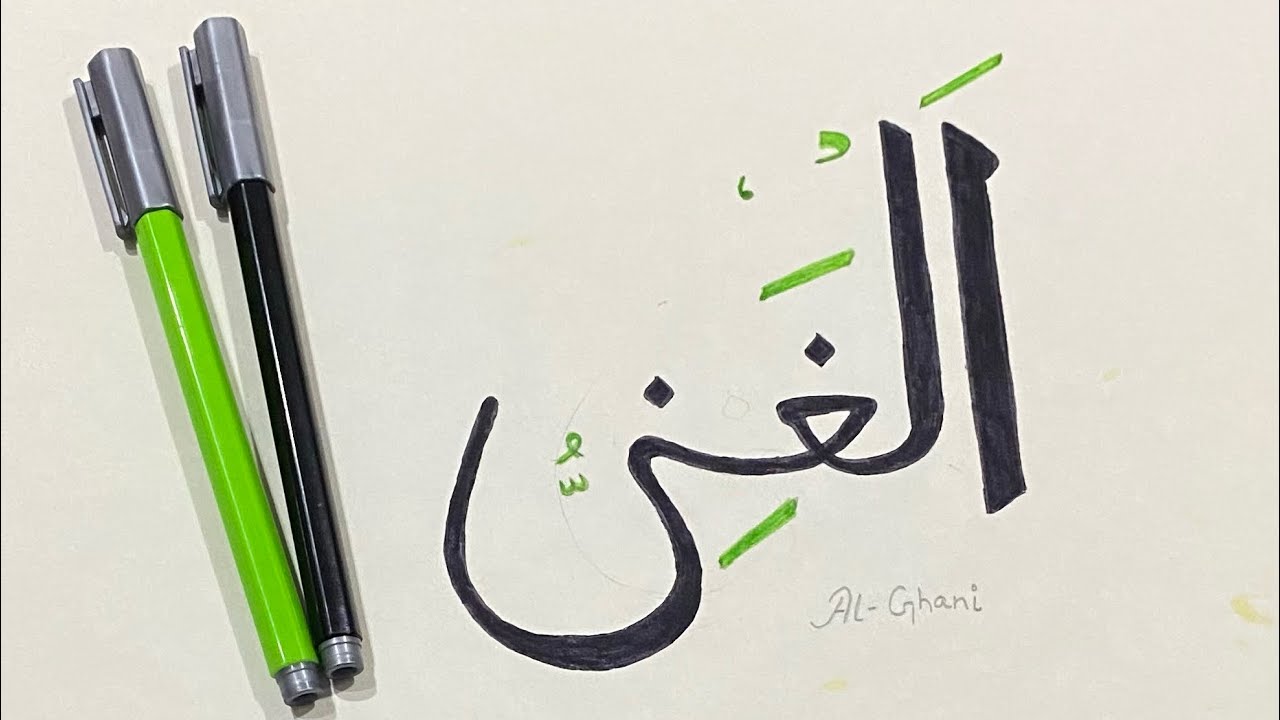 اَلْغَنِىُّ
AL-Ghani